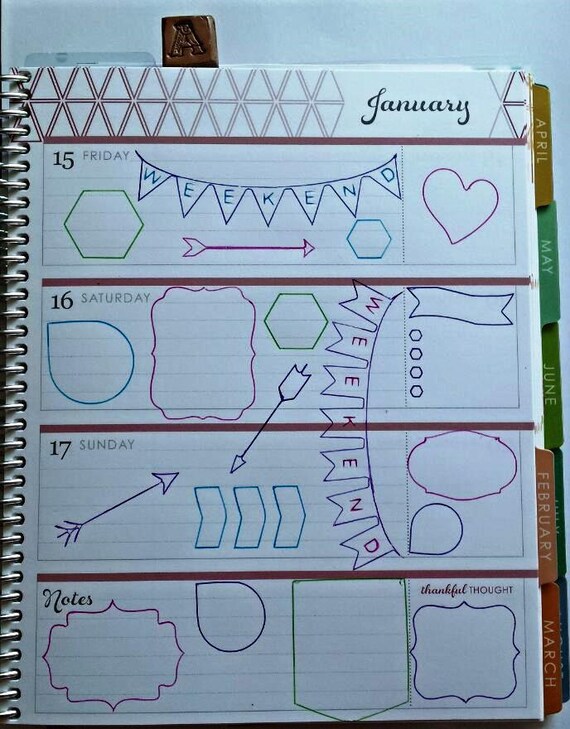 A
January
15 FRIDAY
WEEKEND
16 SATURDAY
WEEKEND
17 SUNDAY
Notes
thankful THOUGHT
APRIL
MAY
JUNE
FEBRUARY
MARCH